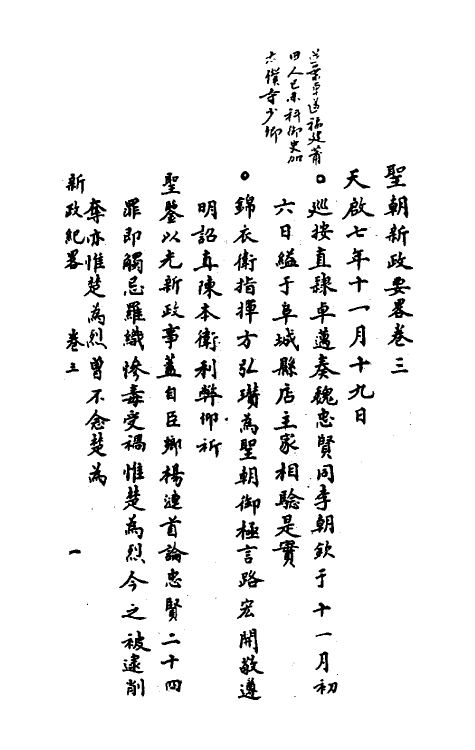 聖朝新政要畧卷三
天啟七年十一月十九日
巡按直隸卓邁奏魏忠賢同李朝欽于十一月初
六日縊于阜城縣店主家相驗是實
錦衣衛指揮方弘瓚為聖朝御極言路宏開敬遵
明詔直陳本衛利弊仰祈
聖鑒以光新政事蓋自臣鄉楊漣首論忠賢二十四
罪即觸忌羅織慘毒受禍惟楚為烈今之被逮削
奪亦惟楚為烈曾不念楚為
新政紀畧 卷三 一
卓邁福建莆
田人己未科御史加
太僕寺少卿